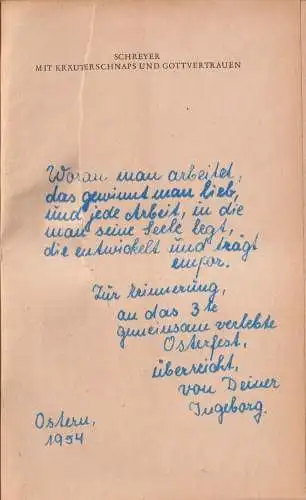 SCHREYER
MIT KRÄUTERSCHNAPS UND GOTTVERTRAUEN
Woran man arbeitet,
das gewinnt man lieb,
und jede Arbeit, in die
man seine Seele legt,
die entwickelt und trägt
empor.
Zur Erinnerung,
an das 3te
gemeinsam verlebte
Osterfest,
überreicht,
von Deiner
Ingeborg.
Ostern,
1954